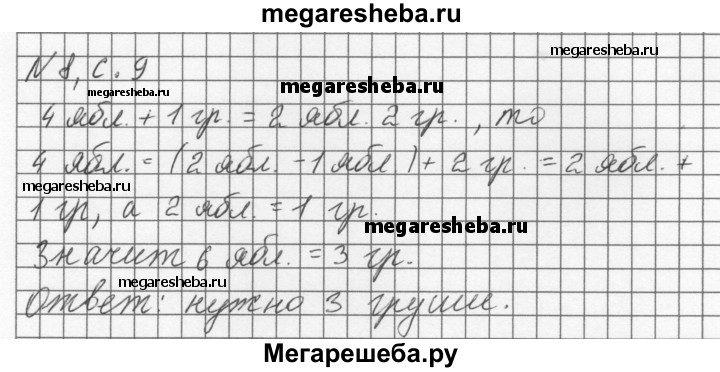 megaresheba.ru
N 8, с. 9
megaresheba.ru
megaresheba.ru
megaresheba.ru
4 ябл. + 1 гр. = 2 ябл. 2 гр., то
4 ябл. = (2 ябл. - 1 ябл.) + 2 гр. = 2 ябл. +
megaresheba.ru
1 гр, а 2 ябл. = 1 гр.
megaresheba.ru
Значит 6 ябл. = 3 гр.
megaresheba.ru
Ответ: нужно 3 груши.
Мегарешеба.ру